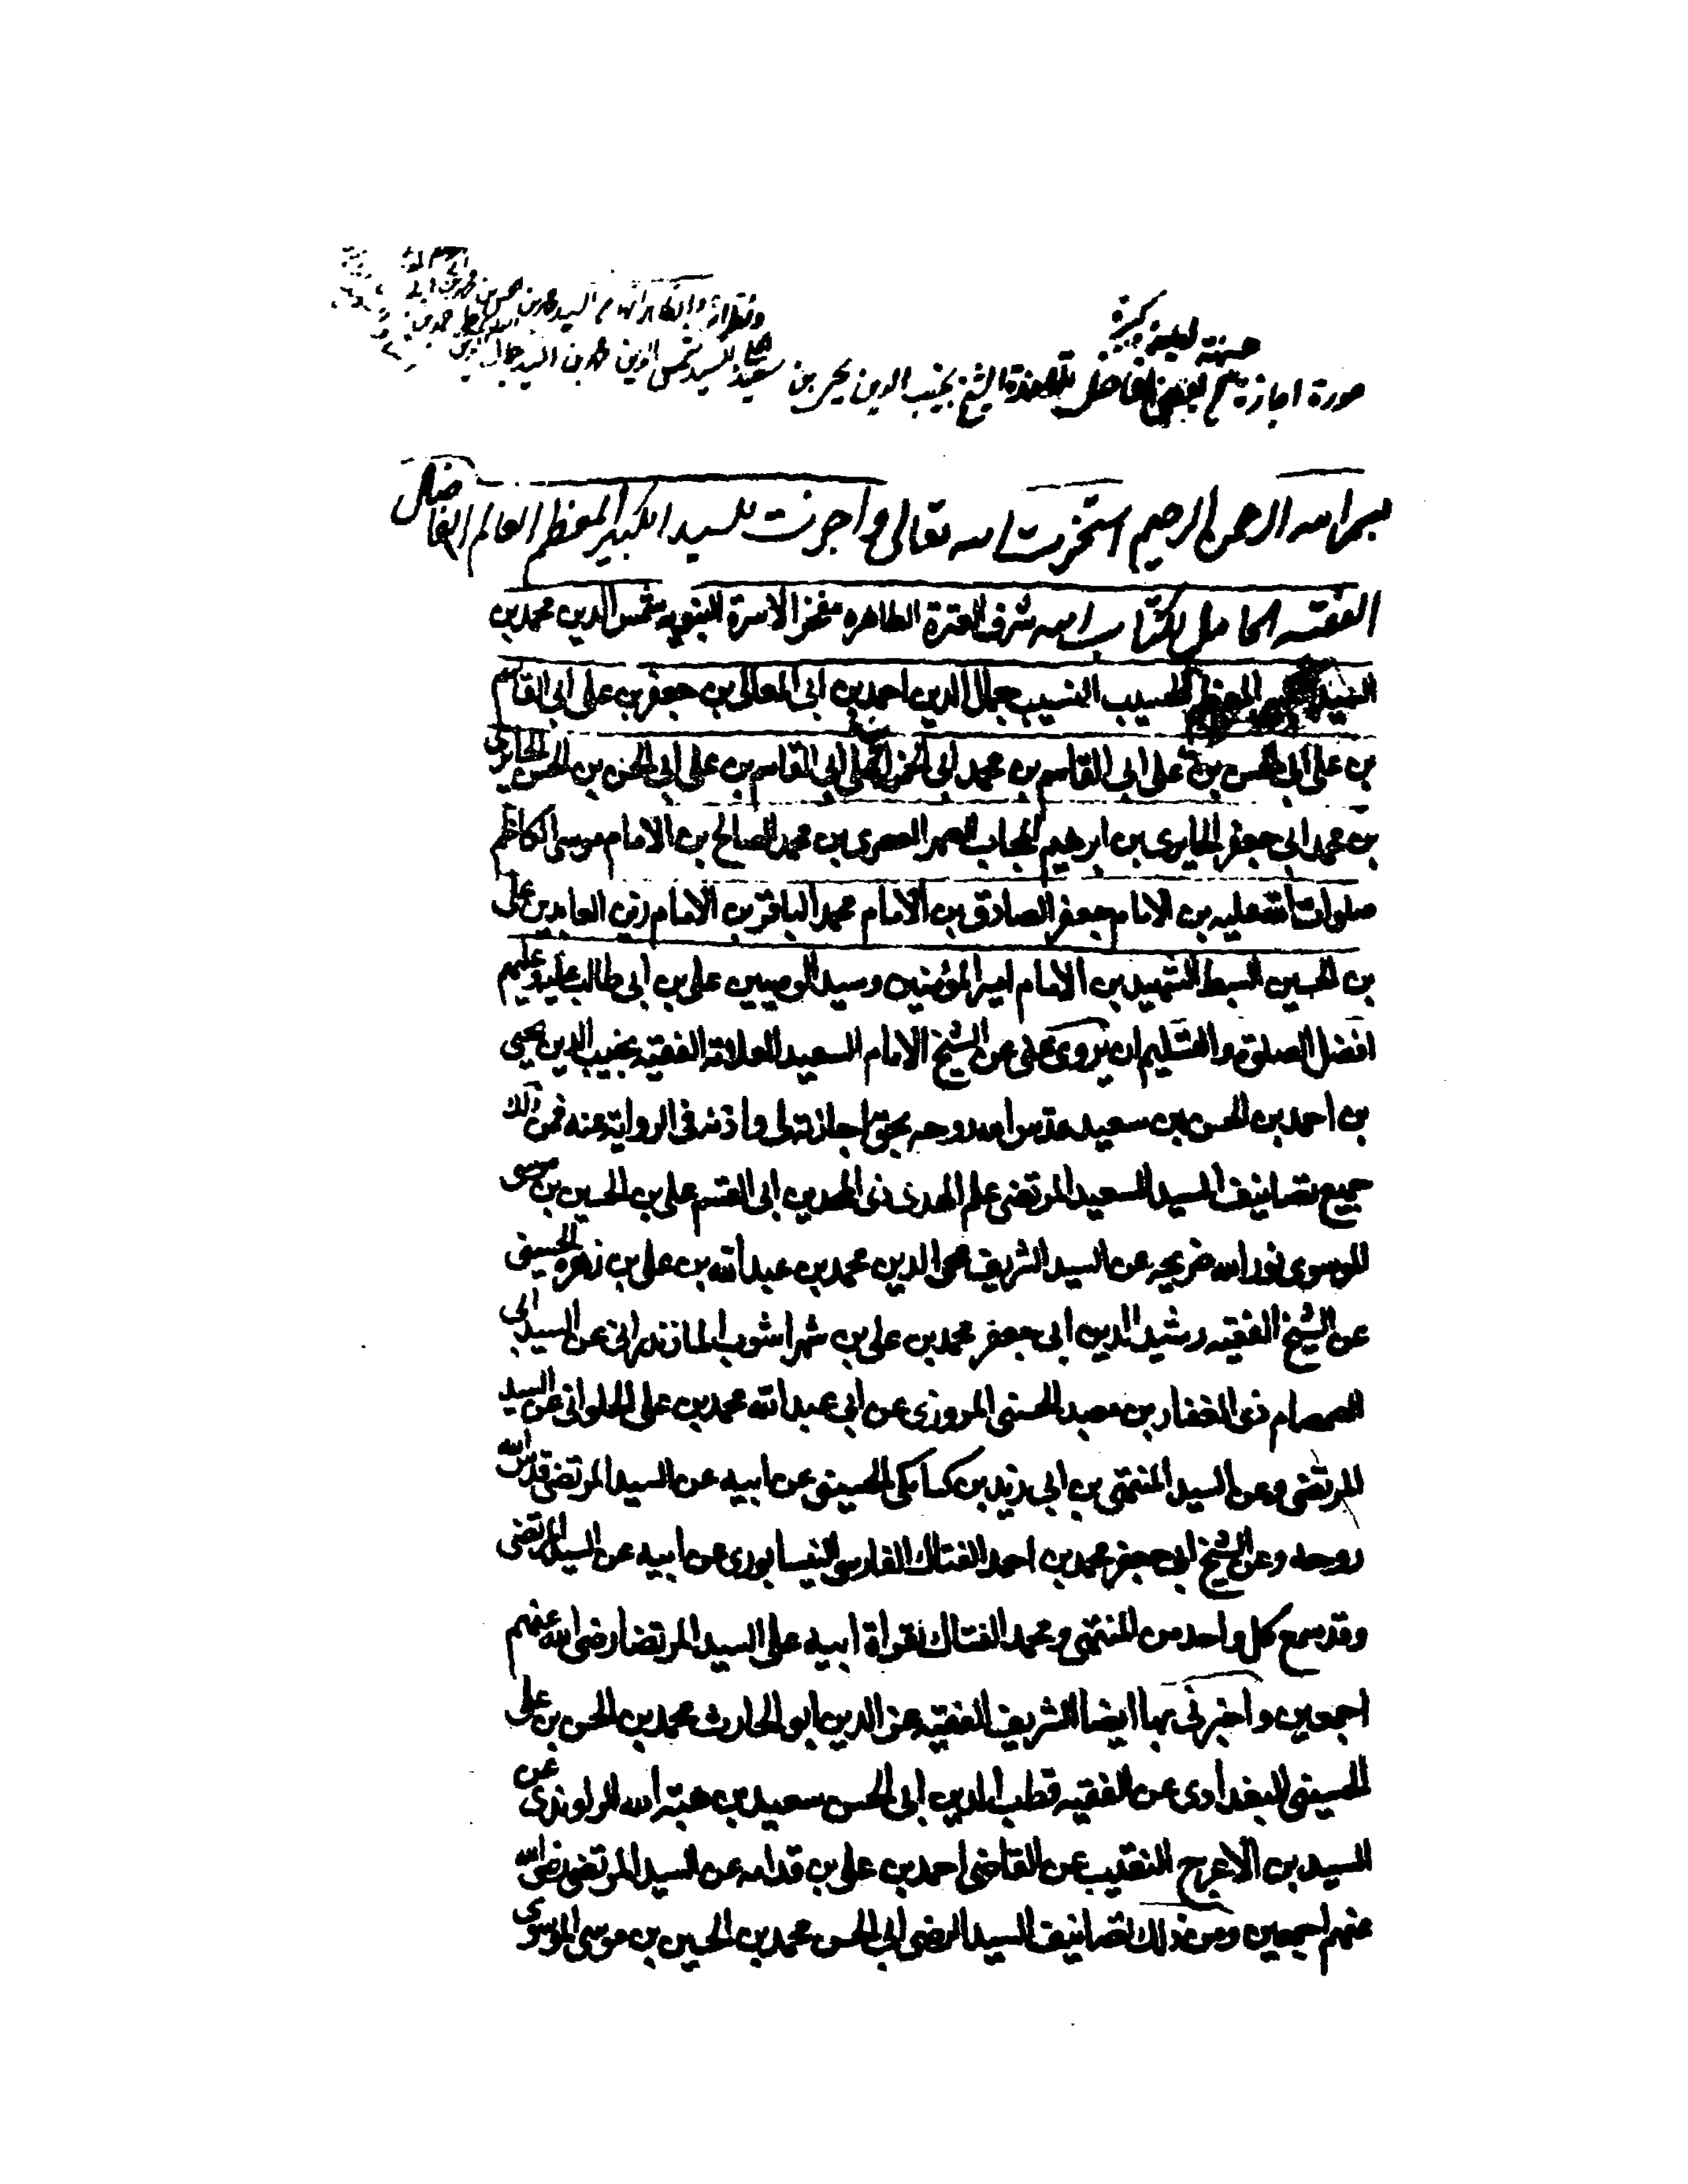 حسنة لطيفة كبيرة
صورة اجازة بعض افاضل تلامذة الشيخ نجيب الدين يحيى بن سعيد للسيد شمس الدين محمد بن السيد جمال الدين
بسم الله الرحمن الرحيم استخرت الله تعالى و اجزت للسيد الكبير المعظم العالم الفاضل
الفقيه الحامل لكتاب الله شرف العترة الطاهره مفخر الاسرة النبويه شمس الدين محمد بن
السيد المعظم الحسيب النسيب جمال الدين احمد بن ابى المعالى بن جعفر بن على ابى القاسم
بن على ابى الحسن بن على ابى القاسم بن محمد ابى الحمد على ابى القاسم بن على ابى الحسن بن الحسن الحايرى
بن محمد ابى جعفر الحايرى بن ابرهيم المجاب الصهر العمرى بن محمد الصالح بن الامام موسى الكاظم
صلوات الله عليه بن الامام جعفر الصادق بن الامام محمد الباقر بن الامام زين العابدين على
بن الحسين السبط الشهيد بن الامام امير المؤمنين و سيد الوصيين على بن ابى طالب عليه و عليهم
افضل الصلوة و التسليم ان يروى عنى عن الشيخ الامام السعيد العلامة الفقيه نجيب الدين يحيى
بن احمد بن الحسن بن سعيد قدس الله روحه بحق اجازته لى و اذنه فى الرواية عنه فمن ذلك
جميع تصانيف السيد السعيد المرتضى علم الهدى ذى المجدين ابى القسم على بن الحسين بن موسى
الموسوى نور الله ضريحه عن السيد الشريف محى الدين محمد بن عبد الله بن على بن زهره الحسينى
عن الشيخ الفقيه رشيد الدين ابى جعفر محمد بن على بن شهراشوب المازندرانى عن السيد ابى
الصمصام ذى الفقار بن معبد الحسنى المروزى عن ابى عبد الله محمد بن على الحلوانى عن السيد
المرتضى و عن السيد المنتهى بن ابى زيد بن كيابكى الحسينى عن ابيه عن السيد المرتضى قدس الله
روحه و عن الشيخ ابى جعفر محمد بن احمد الفتال الفارسى النيسابورى عن ابيه عن السيد المرتضى
و قد سمع كل واحد من المنتهى و محمد الفتال بقراة ابيه على السيد المرتضا رضى الله عنهم
اجمعين و اخبرنى بها ايضا الشريف الفقيه عز الدين ابو الحارث محمد بن الحسن بن على
الحسينى البغدادى عن الفقيه قطب الدين ابى الحسن سعيد بن هبة الله الراوندى عن
السيد بن الاعرج النقيب عن القاضى احمد بن على بن قدامه عن السيد المرتضى رضى الله
عنهم اجمعين و من ذلك تصانيف السيد الرضى ابى الحسن محمد بن الحسين بن موسى الموسوى